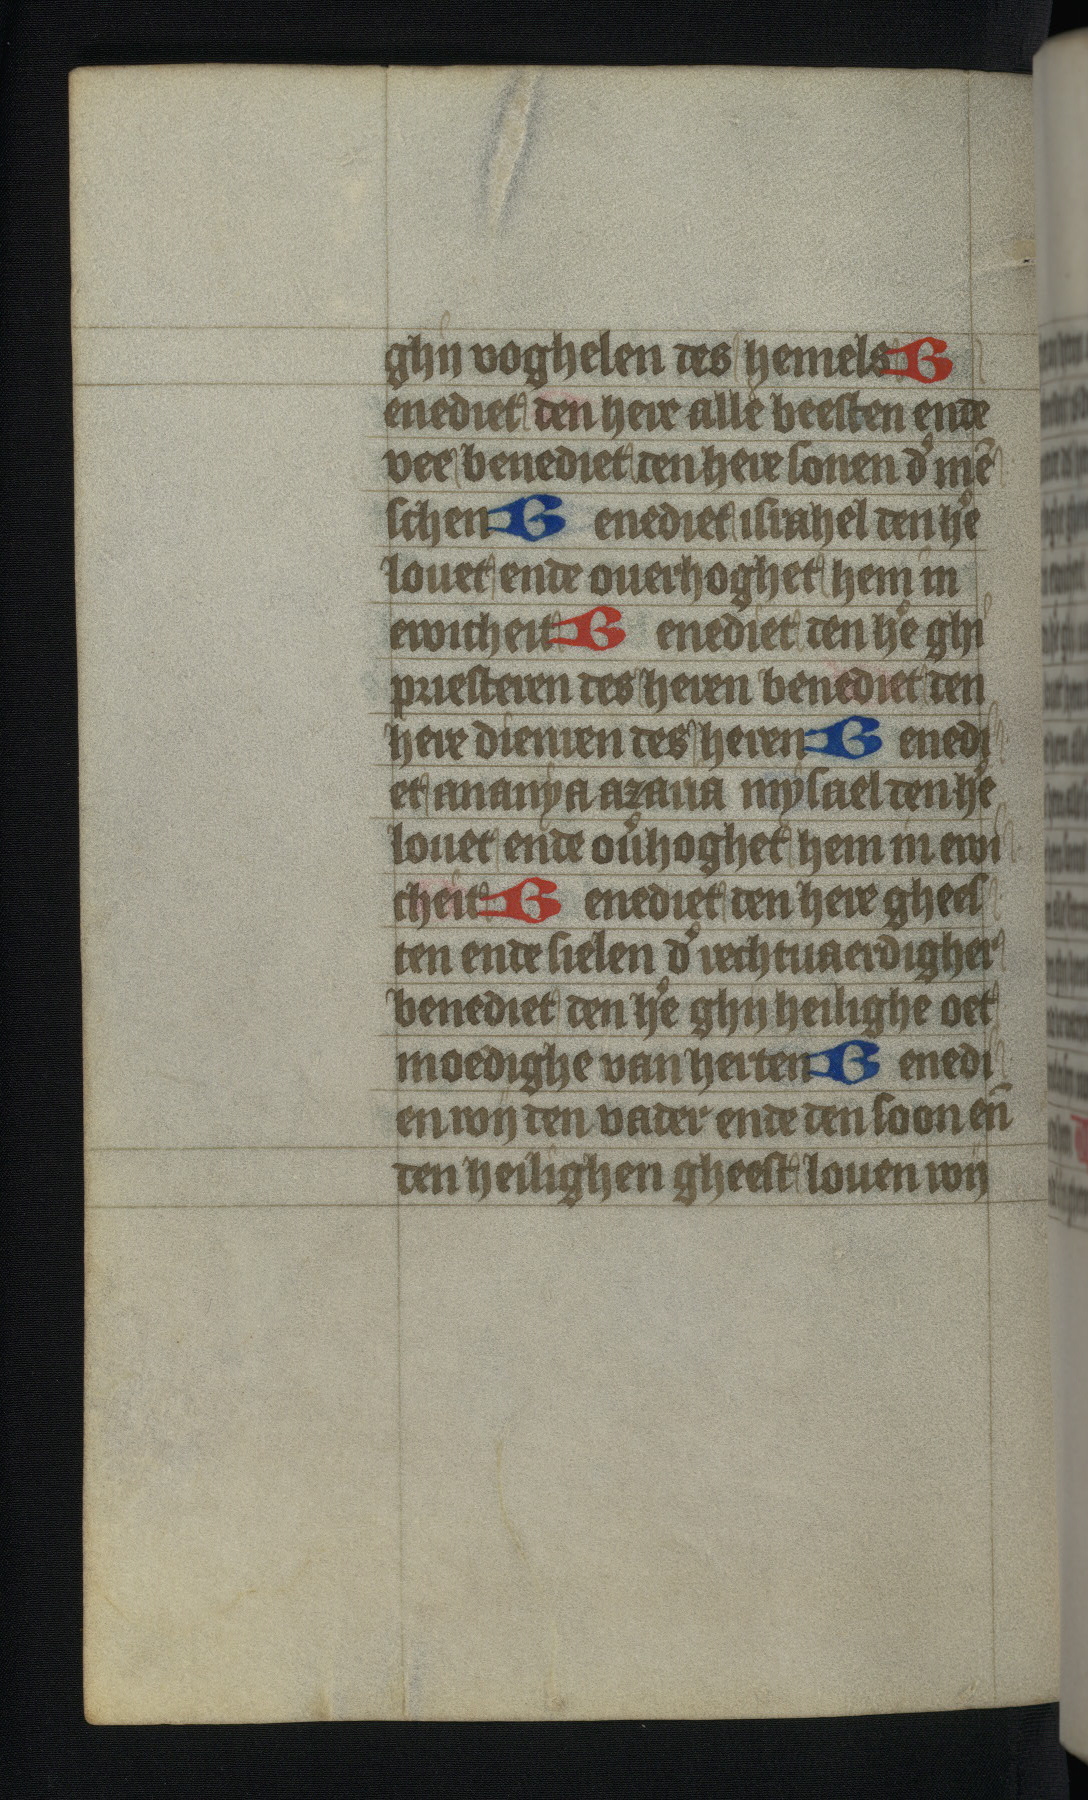 ghij voghelen des hemels B
enediet den here alle beesten ende
vee benediet den here sonen d' mē
schen B enediet israhel den he'
louet ende ouerhoghet hem in
ewicheit B enediet den he' ghi
priesteren des heren benediet den
here dienren des heren B enedi
et ananya azaria mysael den he'
louet ende ou'hoghet hem in ewi
cheit B enediet den here ghees
ten ende sielen d' rechtuaerdigher
benediet den he' ghij heilighe oet
moedighe van herten B enedi
en wij den vader ende den soon eñ
den heilighen gheest louen wij